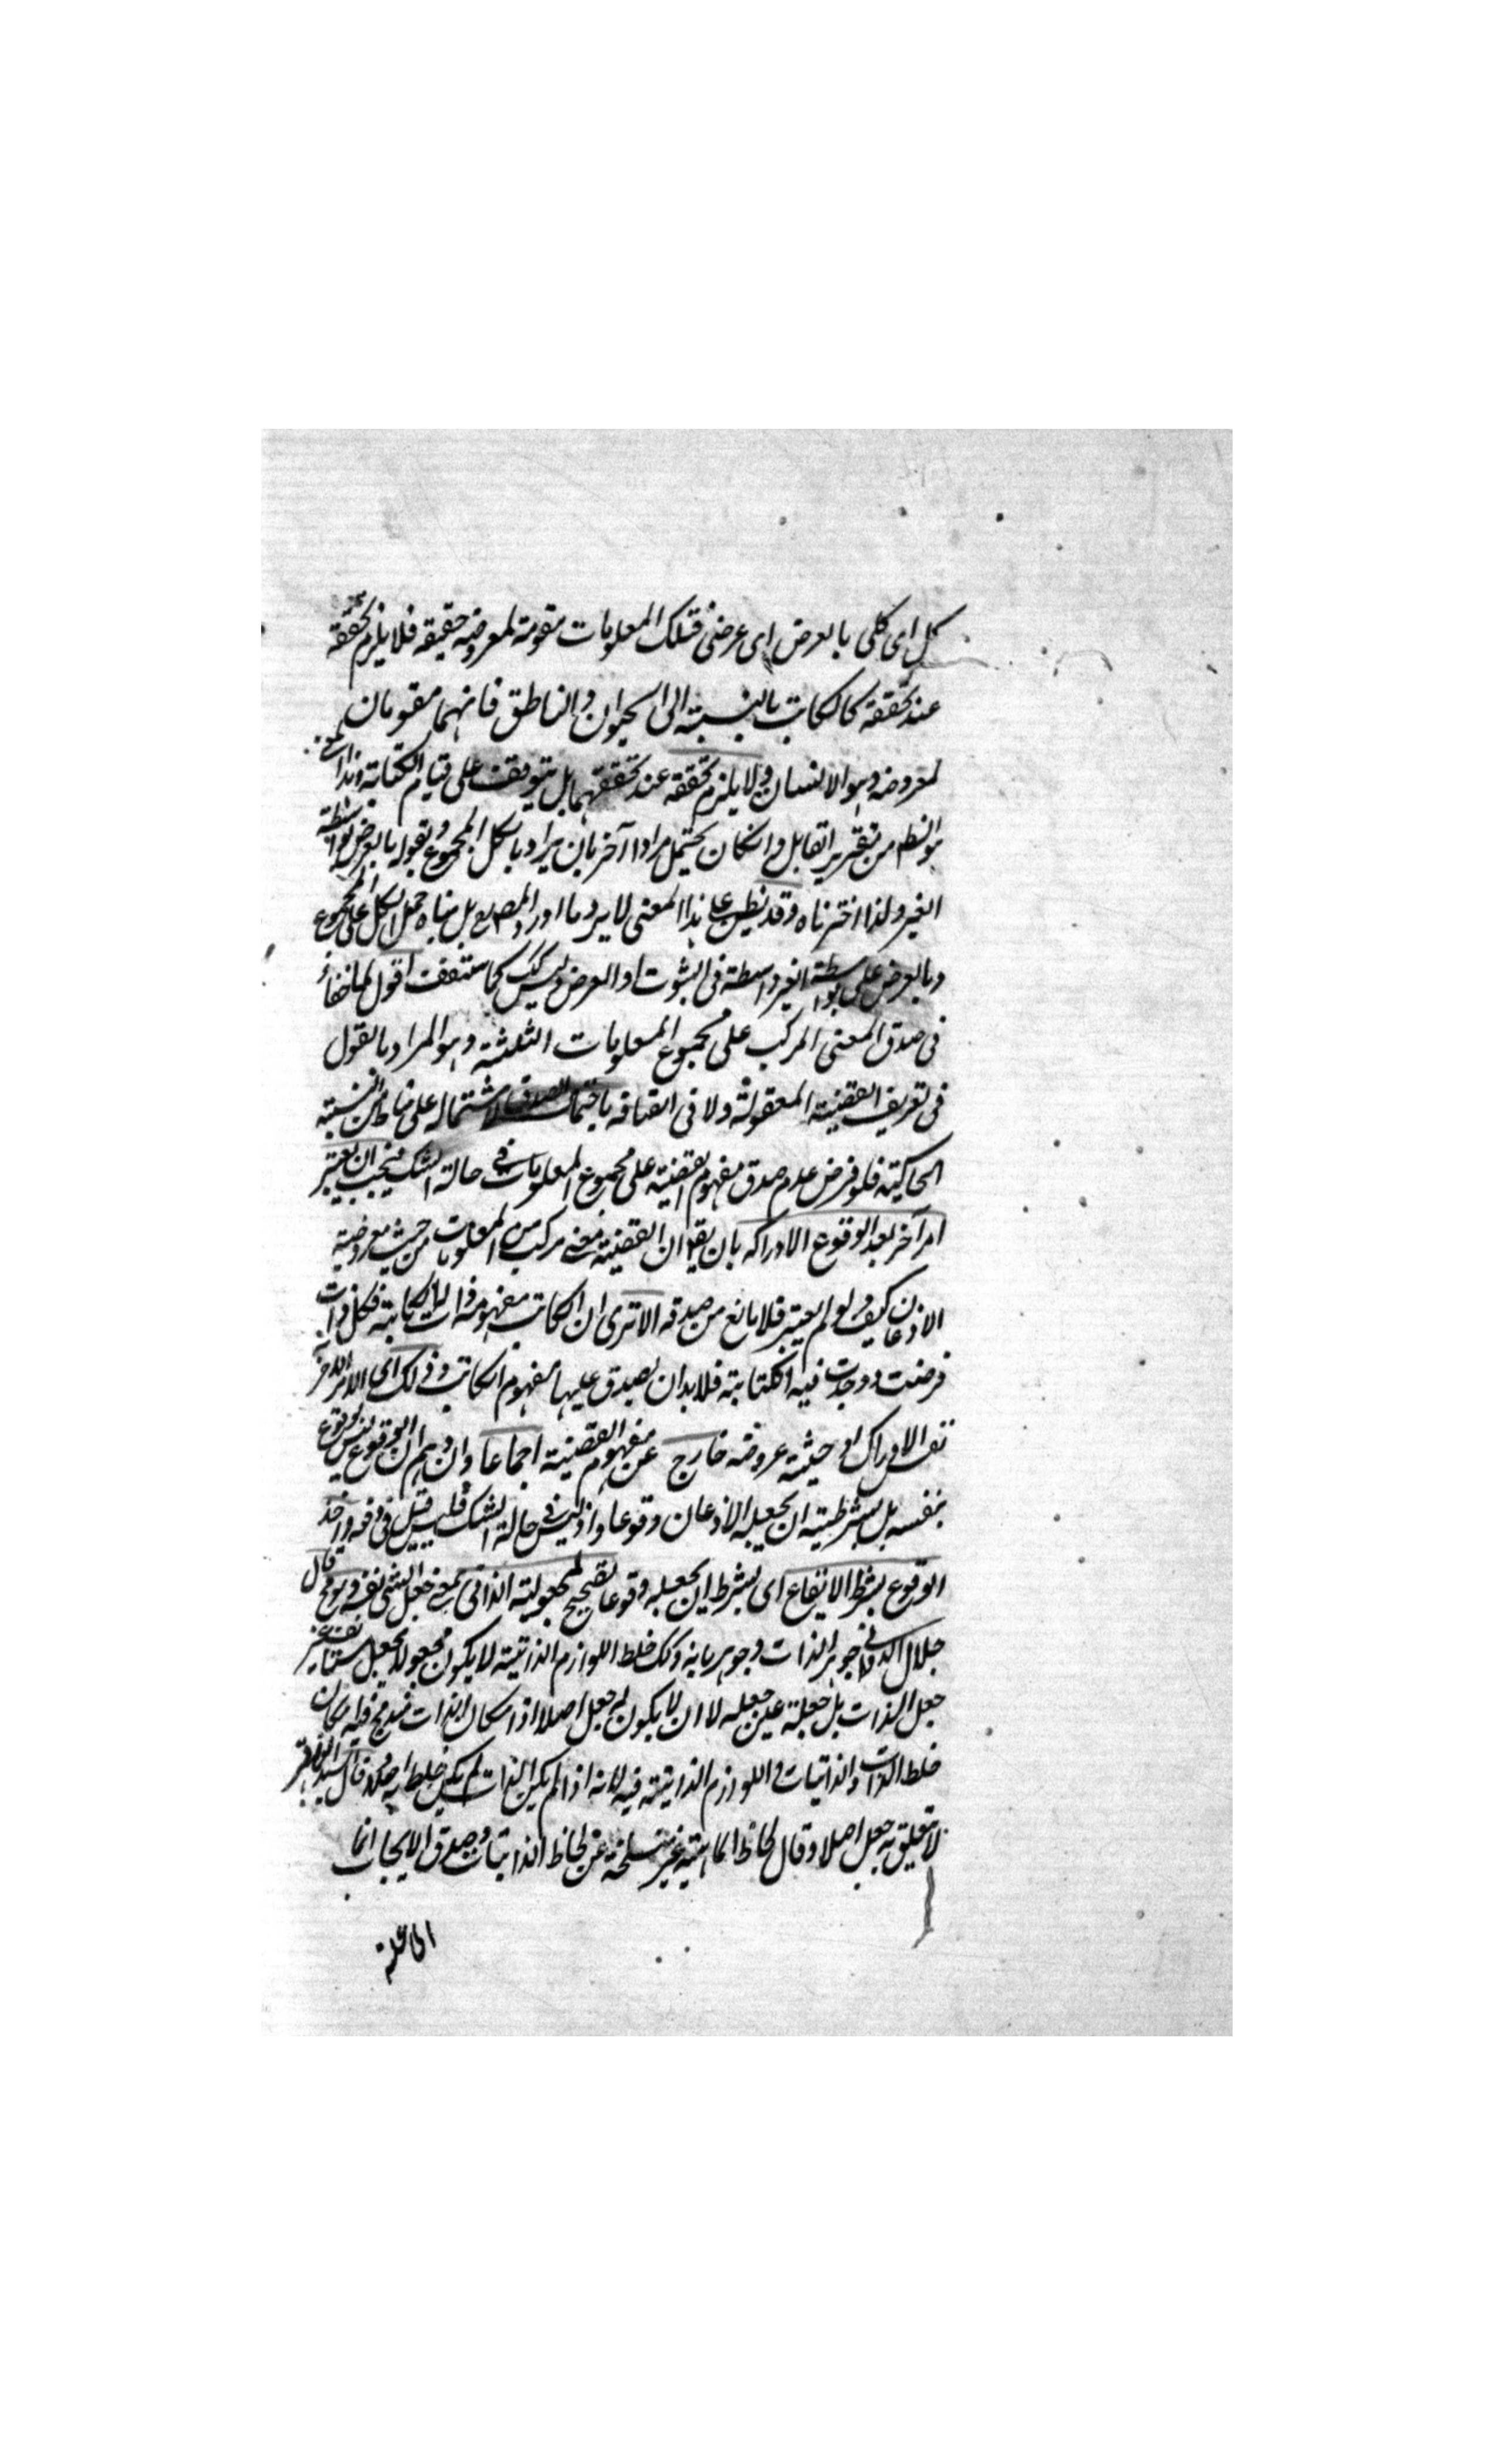 كل اى كلى بالعرض اى عرضى فتلك المعلومات مقومة لمعروضه حقيقة فلا يلزم تحققه
عند تحققه كالكاتب بالنسبة الى الحيوان والناطق فانهما مقومان
لمعروضه وهو الانسان ولا يلزم تحققه عند تحققهما بل يتوقف على قيام الكتابة وهذا
هو الظ من تقرير القابل وان كان يحتمل مرادا آخر بان يراد بالكل المجموع وبقوله بالعرض بواسطة
الغير ولذا اخترناه وقد يظن على هذا المعنى لا يرد ما اورد المصـ بل بناه حمل الكل على المجموع
وبالعرض على بواسطة الغير واسطة فى الثبوت او العرض وليس كك كما ستقف اقول لما خفاء
فى صدق المعنى المركب على مجموع المعلومات الثلثة وهو المراد بالقول
فى تعريف القضية المعقولة ولا فى اتصافه باحتمال الصدق لاشتماله على النسبة
الحاكية فلو فرض عدم صدق مفهوم القضية على مجموع المعلومات فى حالة الشك فيجب ان يعتبر
امر آخر بعد الوقوع الادراكه بان يقال ان القضية معنى مركب من المعلومات من حيث معروضية
الاذعان كيف ولو لم يعتبر فلا مانع من صدقه الا ترى ان الكاتب مفهومه ذات له الكتابة فكل ذات
فرضت ووجدت فيه الكتابة فلا بد ان يصدق عليها مفهوم الكاتب وذلك اى الامر الآخر
نفس الادراك او حيثية عروضه خارج عن مفهوم القضية اجماعا وان وهم ان الوقوع ليس بوقوع
بنفسه بل بشرطية ان يجعله الاذعان وقوعا واذ ليس فى حالة الشك فليس قيل فى دفعه واخذ
الوقوع بشرط الايقاع اى بشرط ان يجعله وقوعا تصحيح لمجعولية الذاتى بمعنى جعل الشئ نفسه وهو مح قال
جلال الدوانى جوهر الذات وجوهرياته وكك خلط اللوازم الذاتية لا يكون مجعولا بجعل مستانف غير
جعل الذات بل جعلة عين جعله لا ان لا يكون له جعل اصلا اذا كان الذات فيه كان
خلط الذات والذاتيات واللوازم الذاتية فيه لانه اذا لم يكن الذات لم يكن خلط قال السيد الباقر
لا تعلق به جعل اصلا وقال لحاظ الماهية غير منسلخة عن لحاظ الذاتيات وصدق الايجاب انما